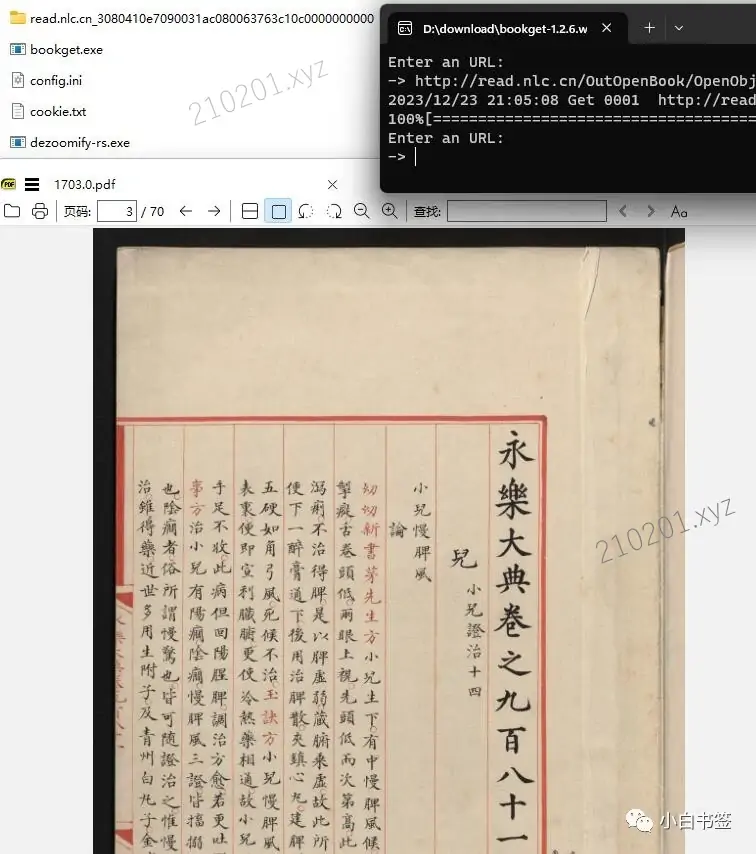 read.nlc.cn_3080410e7090031ac080063763c10c0000000000
bookget.exe
config.ini
cookie.txt
dezoomify-rs.exe
210201.xyz
D:\download\bookget-1.2.6.w
Enter an URL:
-> http://read.nlc.cn/OutOpenBook/OpenObj
2023/12/23 21:05:08 Get 0001 http://read
100%[====================================
Enter an URL:
->
PDF
1703.0.pdf
页码: 3 / 70
查找:
Aa
永樂大典卷之九百八十一
兒 小兒證治十四
小兒慢脾風
論
幼幼新書茅先生方小兒生下有中慢脾風候
掣癡舌卷頭低兩眼上視先頭低而次第高此
瀉痢不治得脾是以脾虛弱藏腑乘虛故此所
便下一醉膏通下後用治脾散夾鎮心丸建脾
五硬如角弓風死候不治玉訣方小兒慢脾風
表裏便即宣利臟腑更使冷熱藥相通故小兒
手足不收此病但回陽醒脾調治方愈若更吐
事方治小兒有陽癇陰癇慢脾風三證皆搐搦
也陰癇者俗所謂慢驚也皆可隨證治之惟慢
治雖得藥近世多用生附子及青州白丸子金
210201.xyz
小白书签